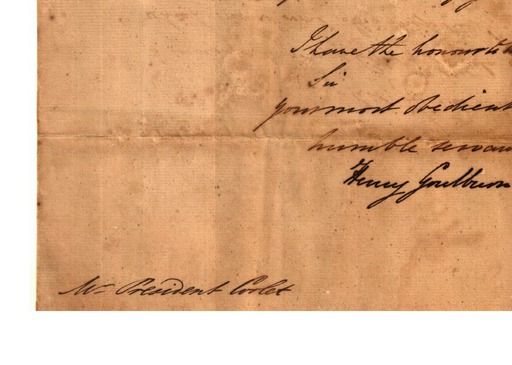 I have the honour to
Sir
your most obedient
humble servan
Henry Goulburn
Mr President